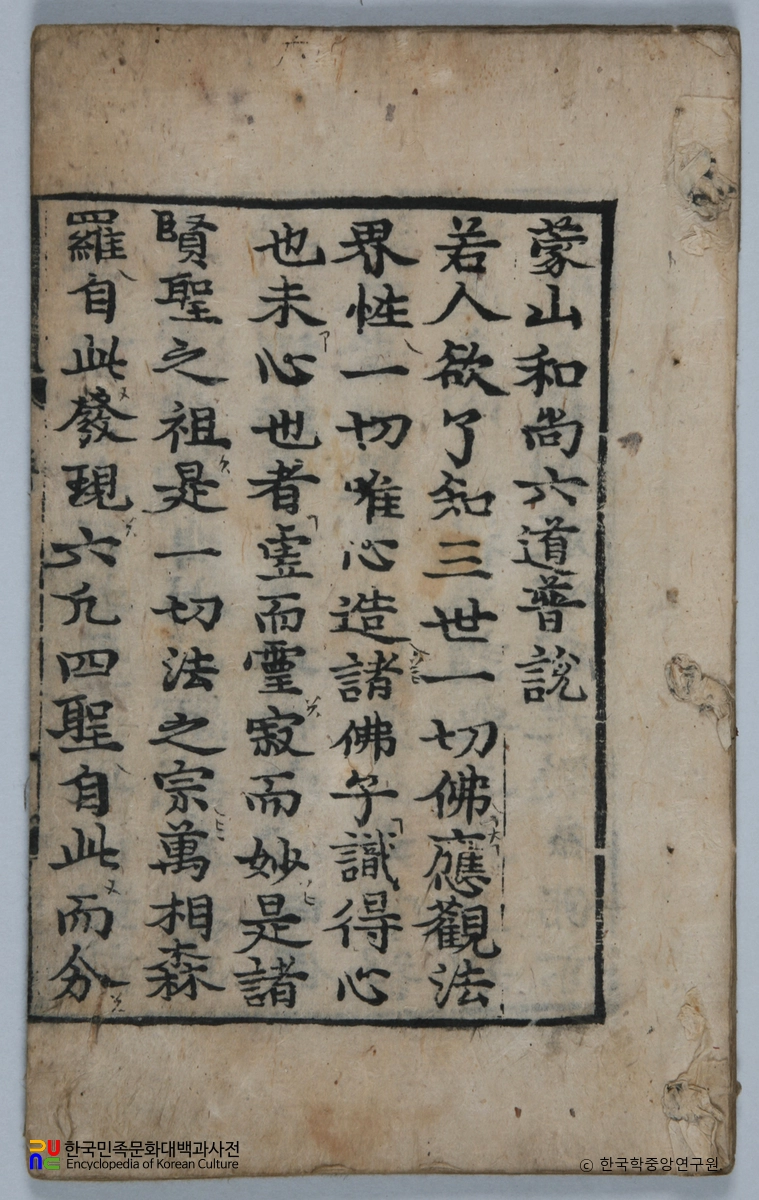 蒙山和尚六道普說
若人欲了知三世一切佛應觀法
界性一切唯心造諸佛子識得心
也未心也者虛而靈寂而妙是諸
賢聖之祖是一切法之宗萬相森
羅自此發現六凡四聖自此而分
한국민족문화대백과사전
Encyclopedia of Korean Culture
© 한국학중앙연구원